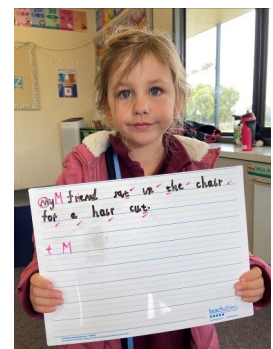 My M friend sat in the chair
for a hair cut.
t M
teachables